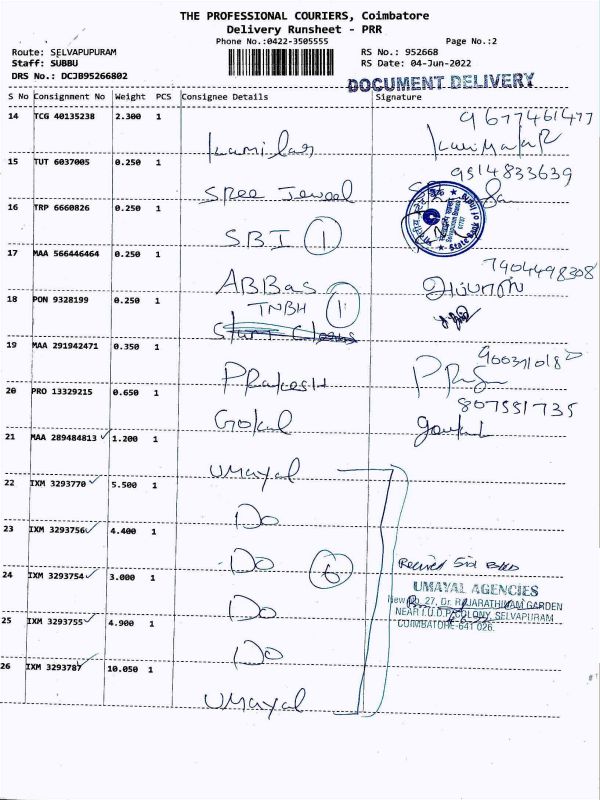 THE PROFESSIONAL COURIERS, Coimbatore
Delivery Runsheet - PRR
Phone No.:0422-3505555
Page No.:2
Route: SELVAPUPURAM
Staff: SUBBU
DRS No.: DCJB95266802
RS No.: 952668
RS Date: 04-Jun-2022
DOCUMENT DELIVERY
S No Consignment No Weight PCS Consignee Details Signature
14 TCG 40135238 2.300 1
15 TUT 6037005 0.250 1 Sree Jewel
16 TRP 6660826 0.250 1 SBI 1
State Bank of India
17 MAA 566446464 0.250 1 ABBas அப்பாஸ்
18 PON 9328199 0.250 1 TNBH 1
19 MAA 291942471 0.350 1 PRakesH
20 PRO 13329215 0.650 1 Gokul
807551735
21 MAA 289484813 1.200 1 Umayal
22 IXM 3293770 5.500 1 Do
23 IXM 3293756 4.400 1 Do
24 IXM 3293754 3.000 1 Do 6
25 IXM 3293755 4.900 1 Do
26 IXM 3293787 10.050 1 Umayal
9677461477
9514833639
7904498308
Received Six
UMAYAL AGENCIES
New No. 27, Dr. RAJARATHINAM GARDEN
NEAR I.U.D.P. COLONY, SELVAPURAM
COIMBATORE-641 026.